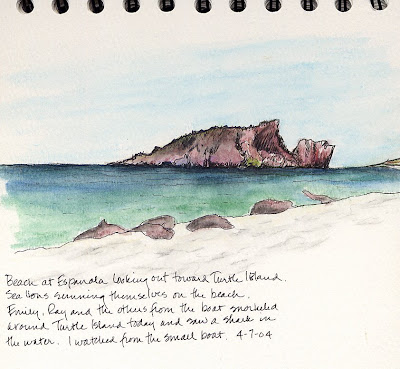 Beach at Espanola looking out toward Turtle Island.
Sea lions sunning themselves on the beach.
Emily, Ray and the others from the boat snorkeled
around Turtle Island today and saw a shark in
the water. I watched from the small boat. 4-7-04